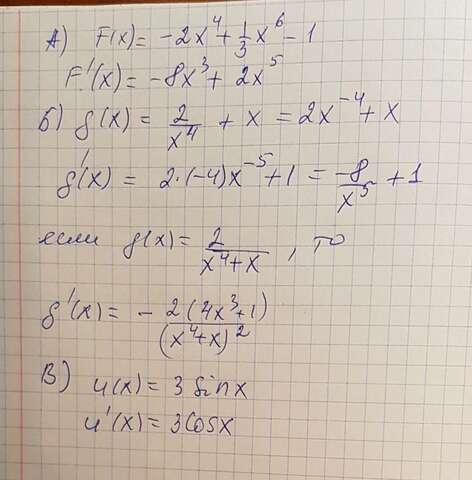 А) F(x) = -2x⁴ + 1/3 x⁶ - 1
F'(x) = -8x³ + 2x⁵
Б) g(x) = 2/x⁴ + x = 2x⁻⁴ + x
g'(x) = 2·(-4)x⁻⁵ + 1 = -8/x⁵ + 1
если g(x) = 2/(x⁴+x), то
g'(x) = - 2(4x³+1)/(x⁴+x)²
В) u(x) = 3 sinx
u'(x) = 3cosx